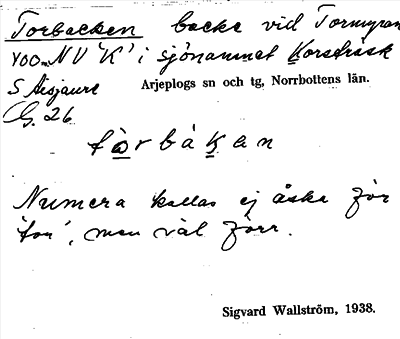 Torbacken backe vid Tormyran
700 m NV 'K' i sjönamnet Korsträsk
S Aisjaure Arjeplogs sn och tg, Norrbottens län.
G. 26
tòrbàkan
Numera kallas ej åska för
'tor', men väl förr.
Sigvard Wallström, 1938.